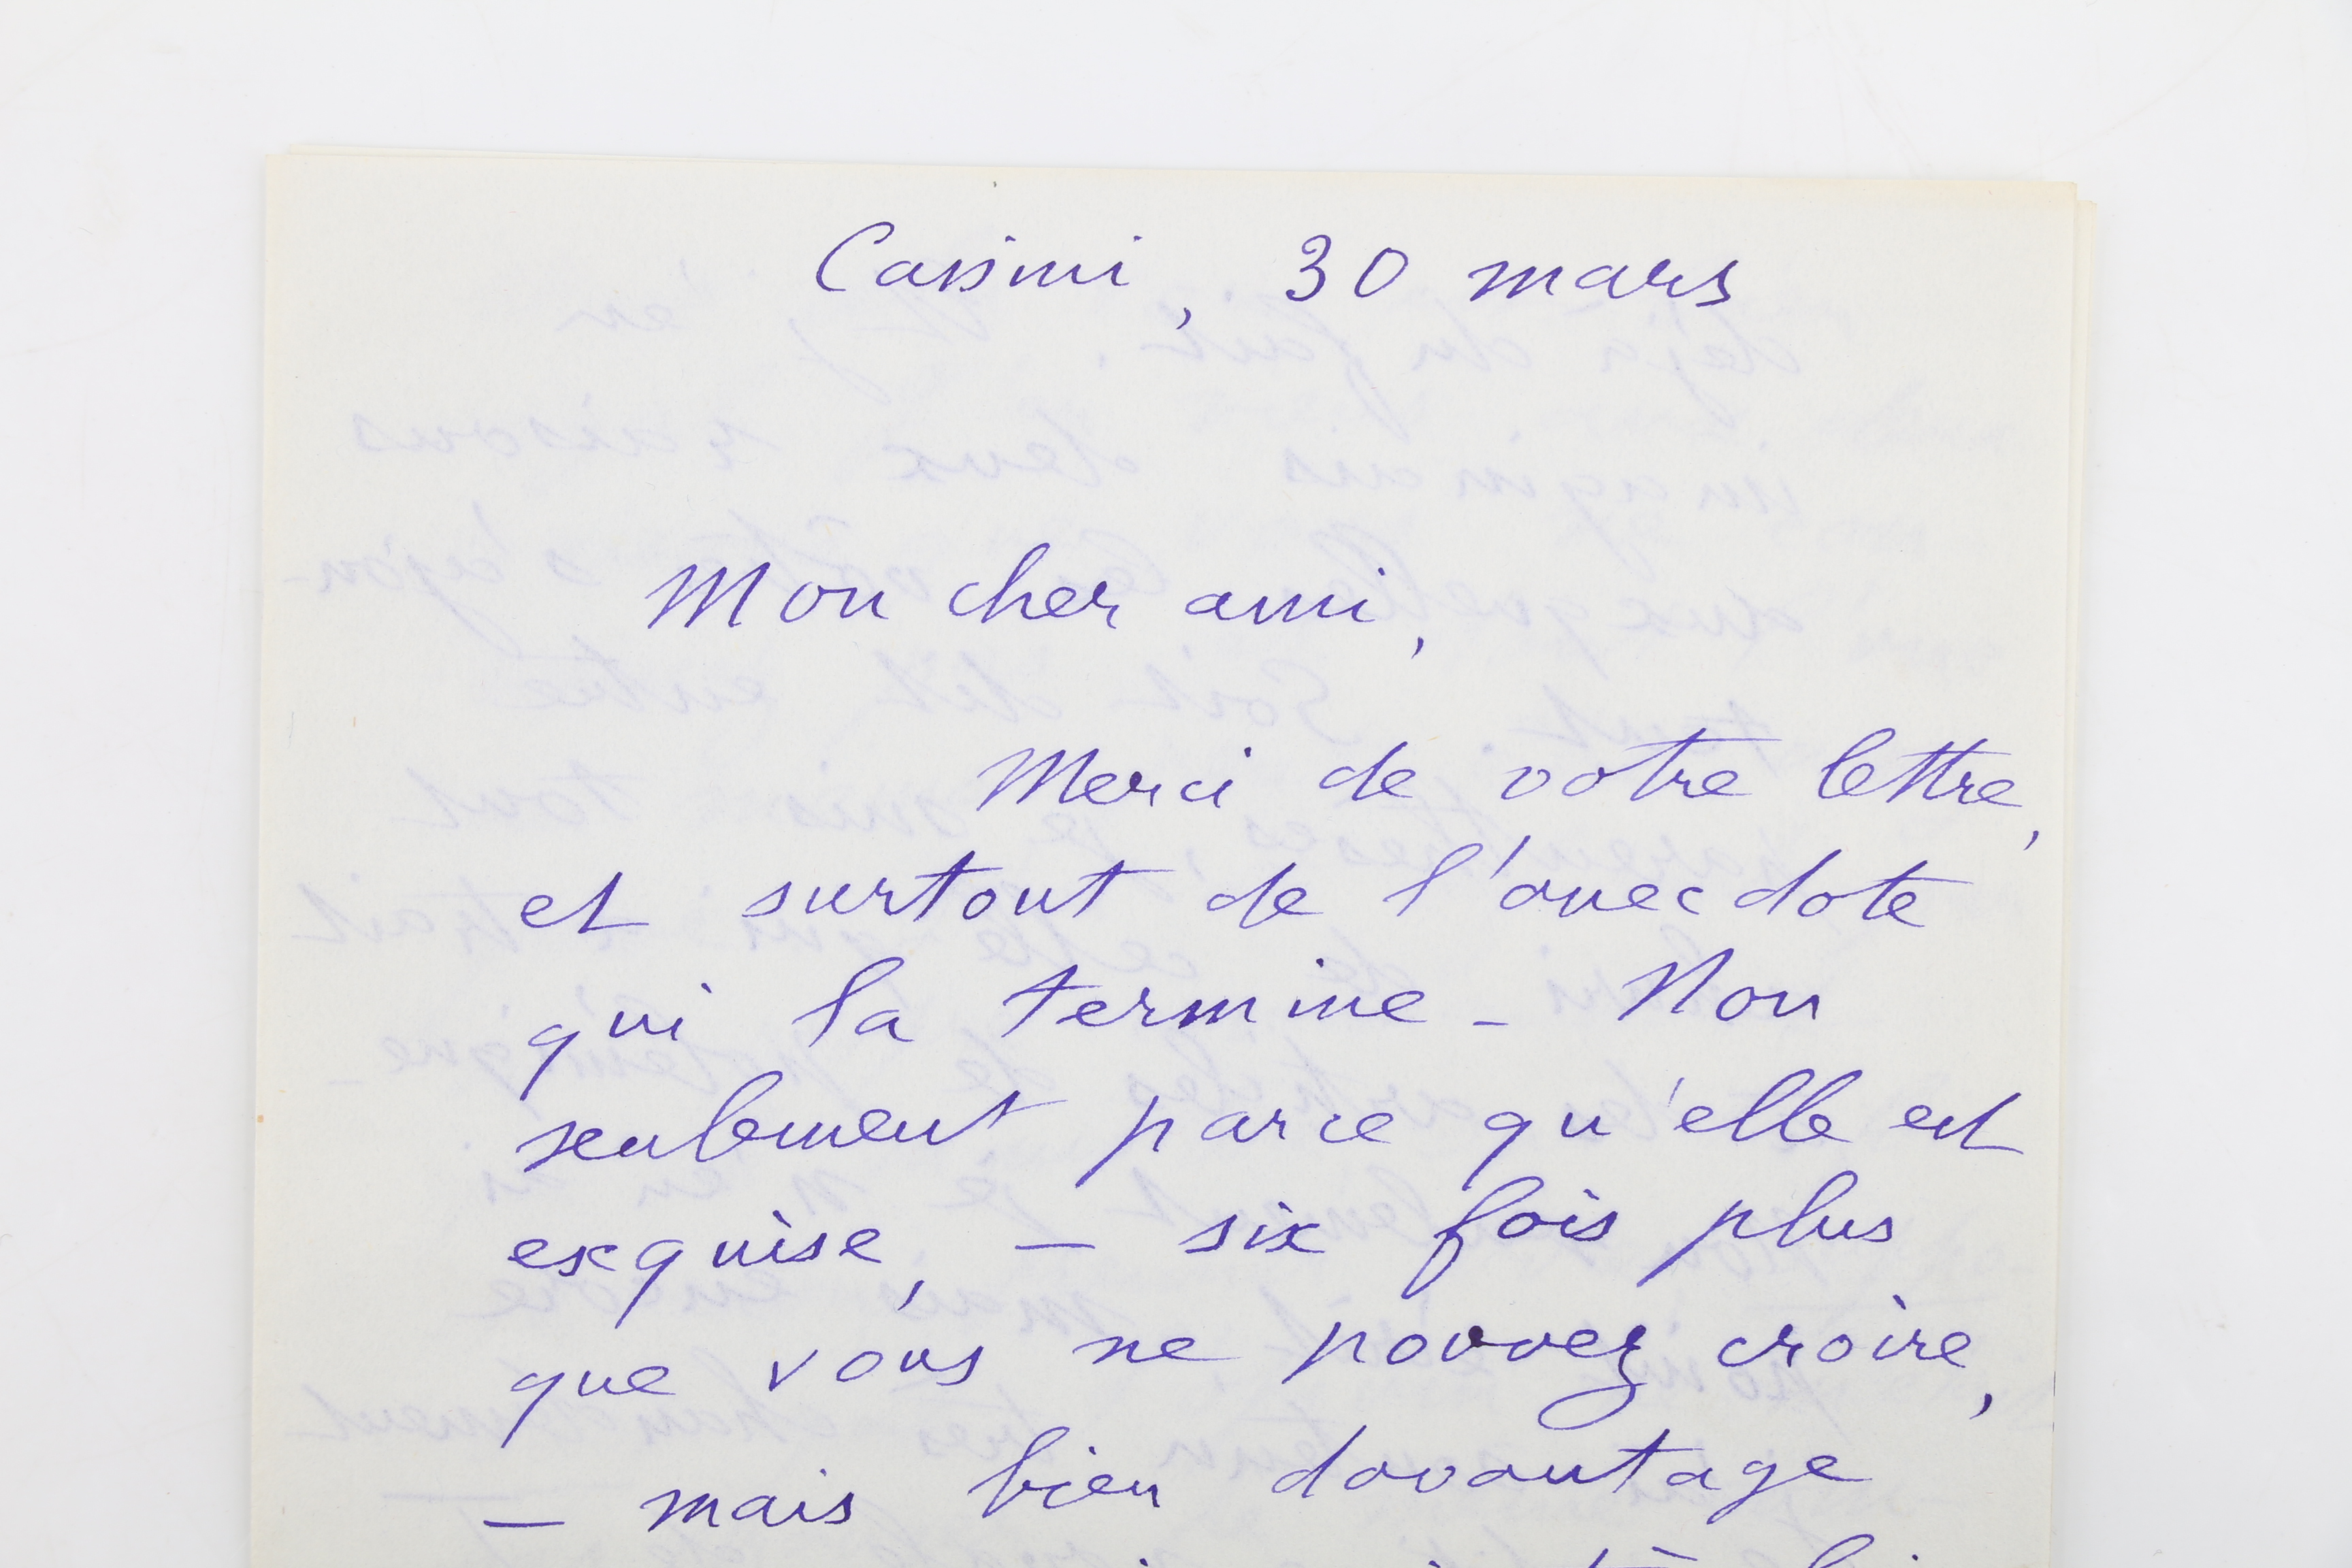 Cassini, 30 mars
Mon cher ami,
Merci de votre lettre,
et surtout de l'anecdote
qui la termine - Non
seulement parce qu'elle est
exquise, — six fois plus
que vous ne pouvez croire,
— mais bien davantage